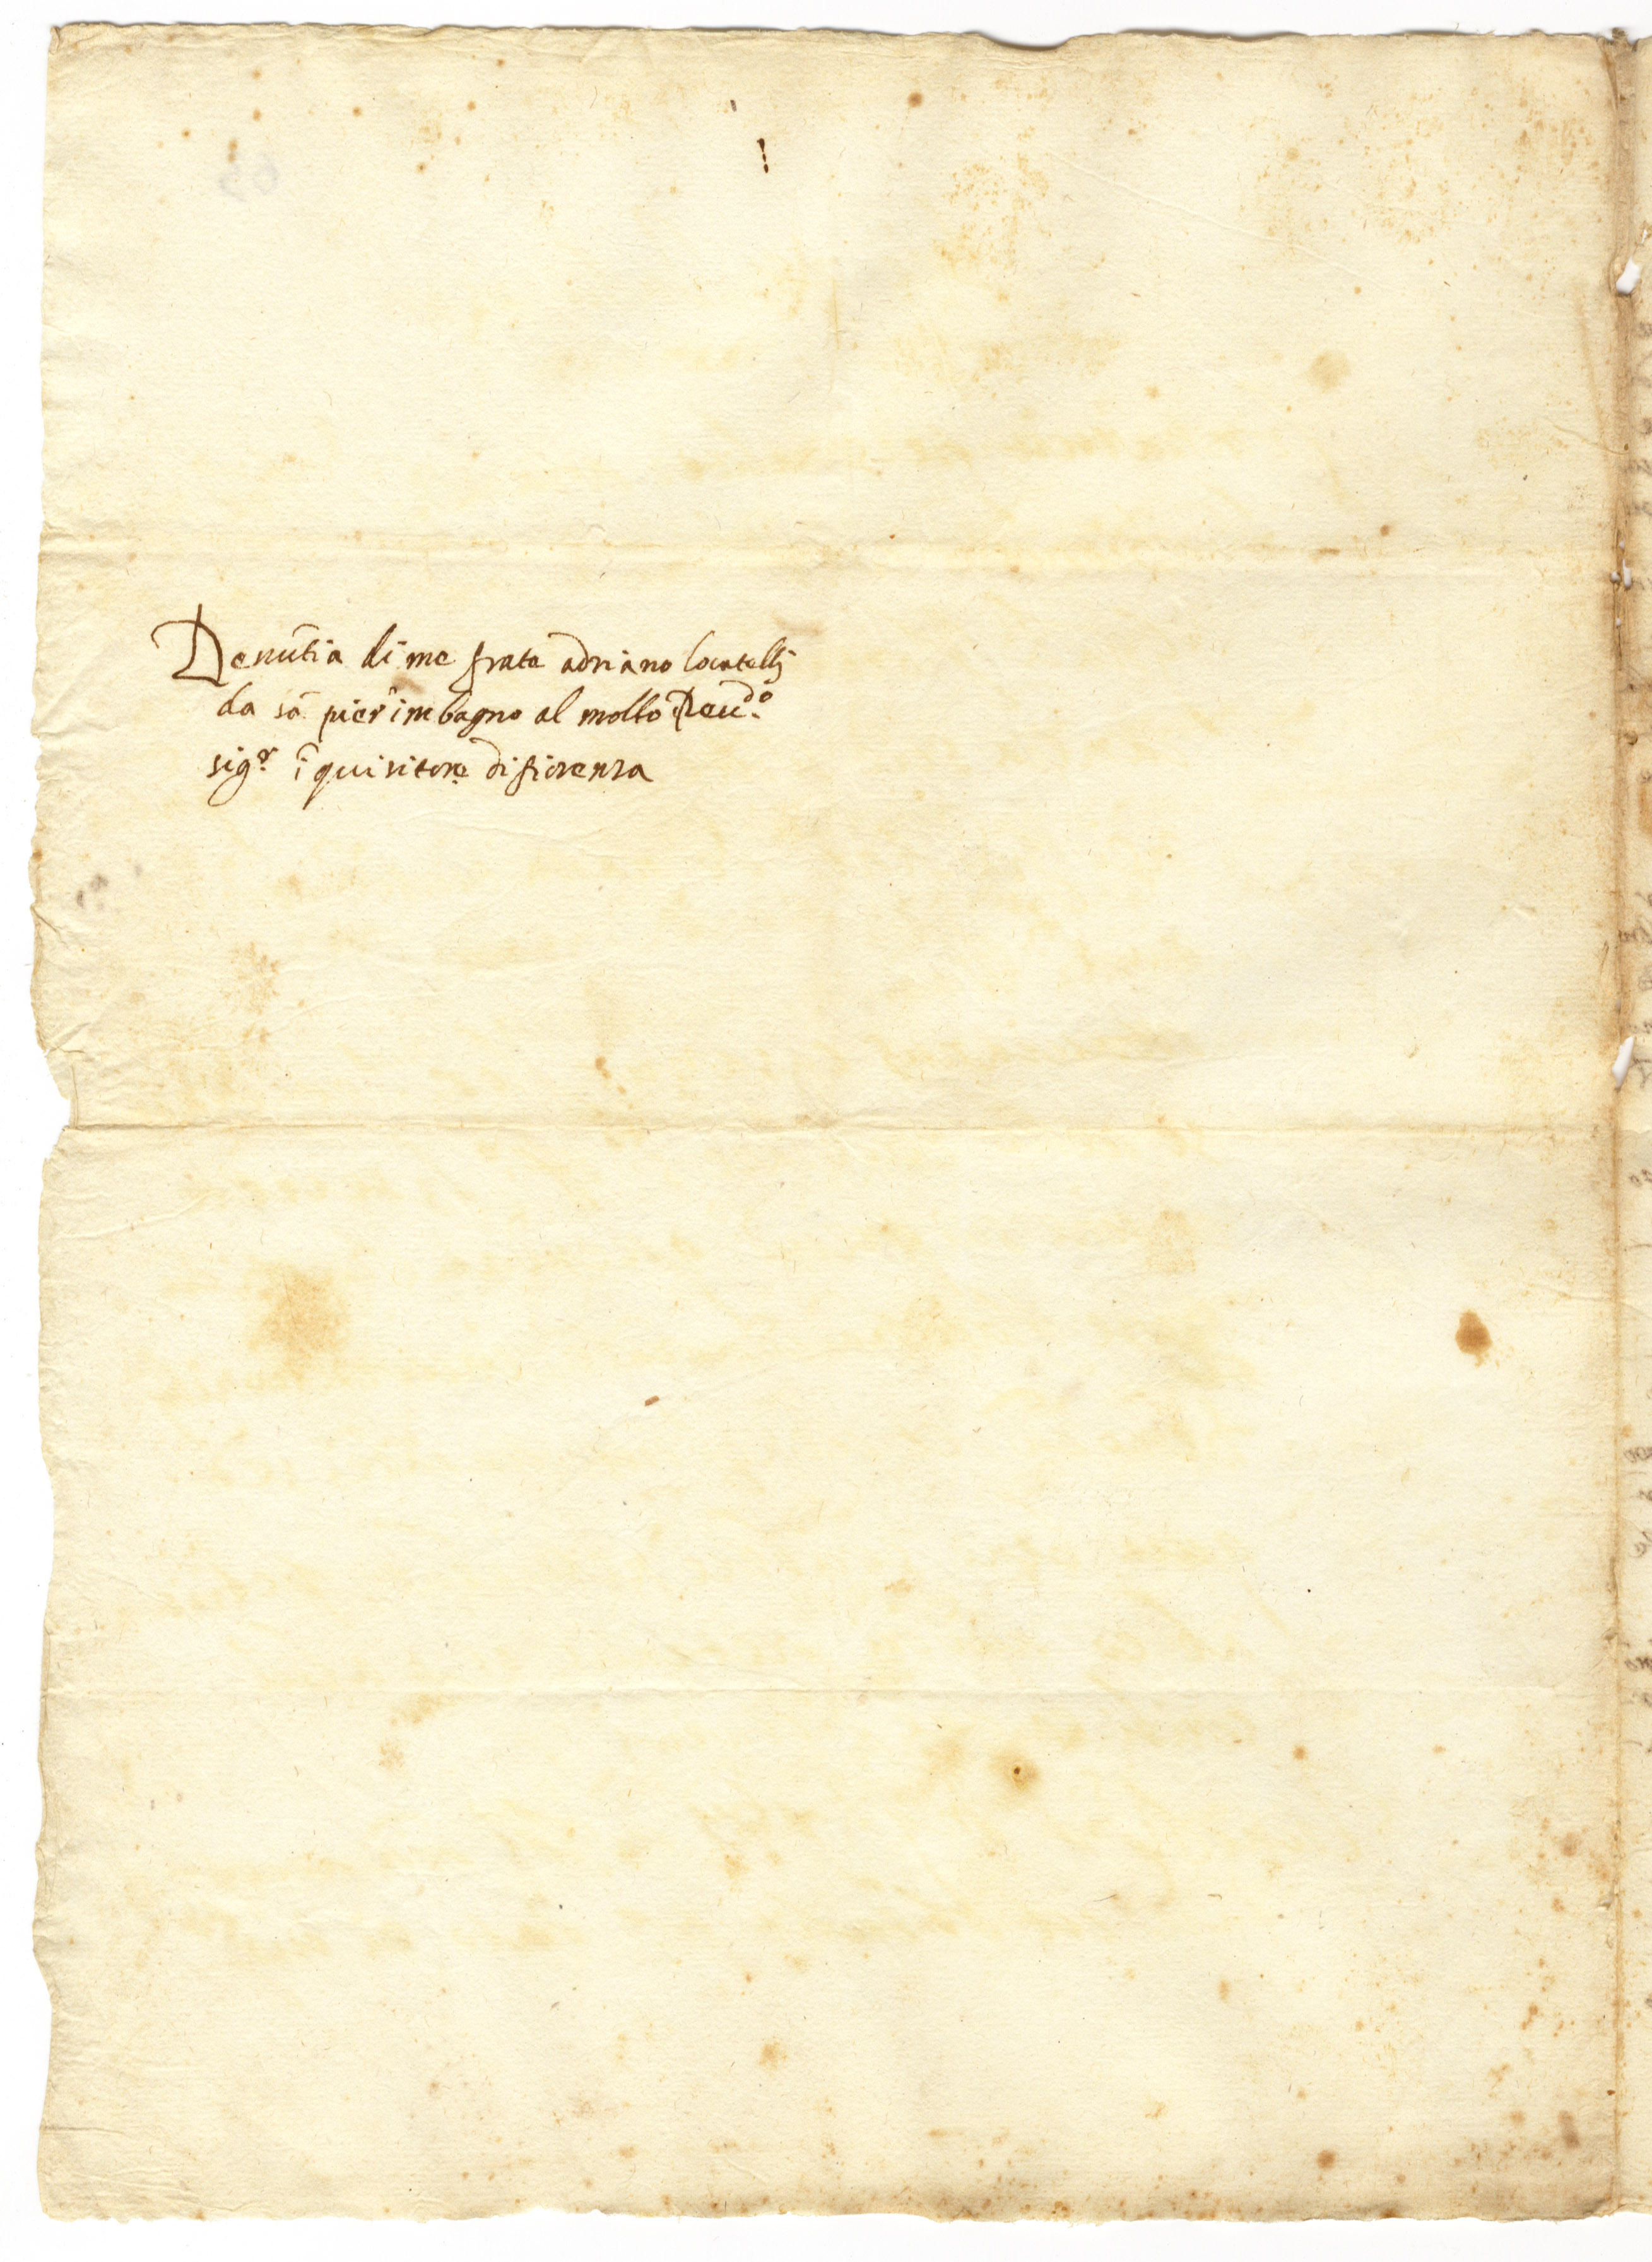 Denũtia di me frate adriano locatelli
da sã pier ĩ bagno al molto Reu.do
sig.r ĩquisitore di fiorenza